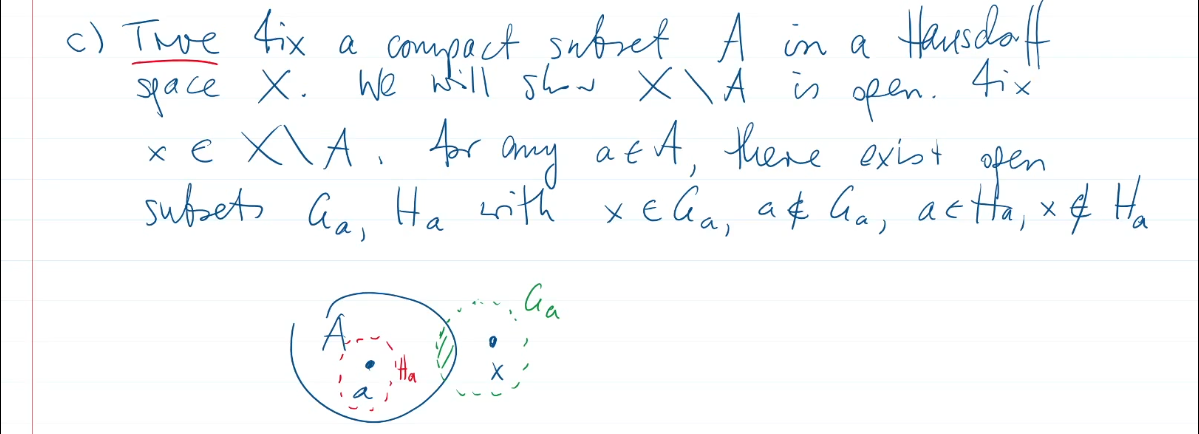 c) True Fix a compact subset A in a Hausdorff
space X. We will show X \ A is open. Fix
x ∈ X \ A. For any a ∈ A, there exist open
subsets Ga, Ha with x ∈ Ga, a ∉ Ga, a ∈ Ha, x ∉ Ha
Ga
A
Ha
x
a